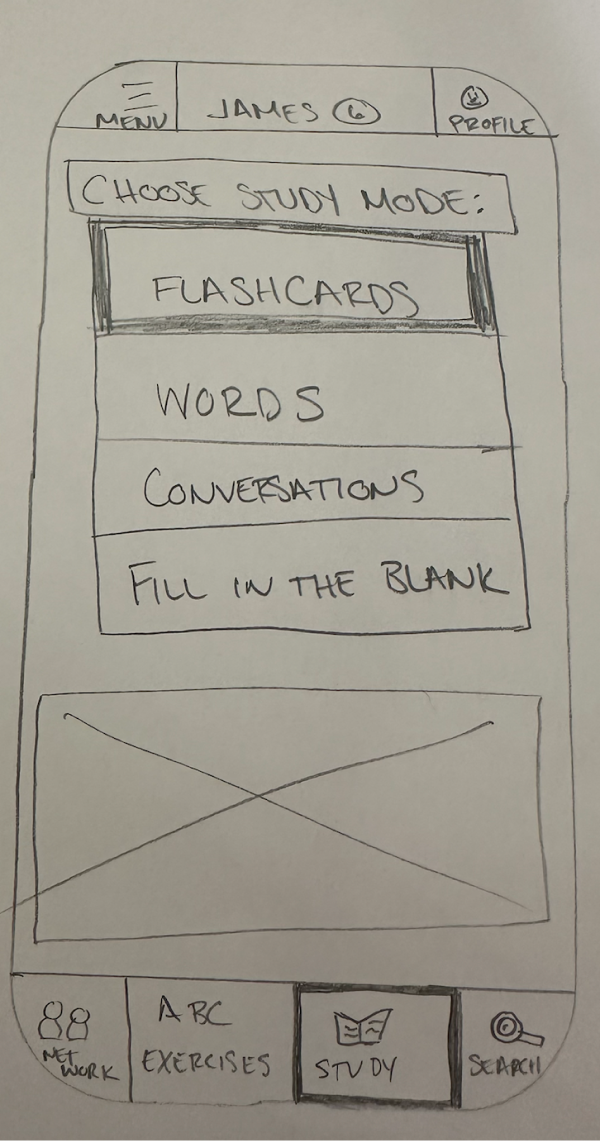 MENU
JAMES 6
PROFILE
CHOOSE STUDY MODE:
FLASHCARDS
WORDS
CONVERSATIONS
FILL IN THE BLANK
NET
WORK
ABC
EXERCISES
STUDY
SEARCH